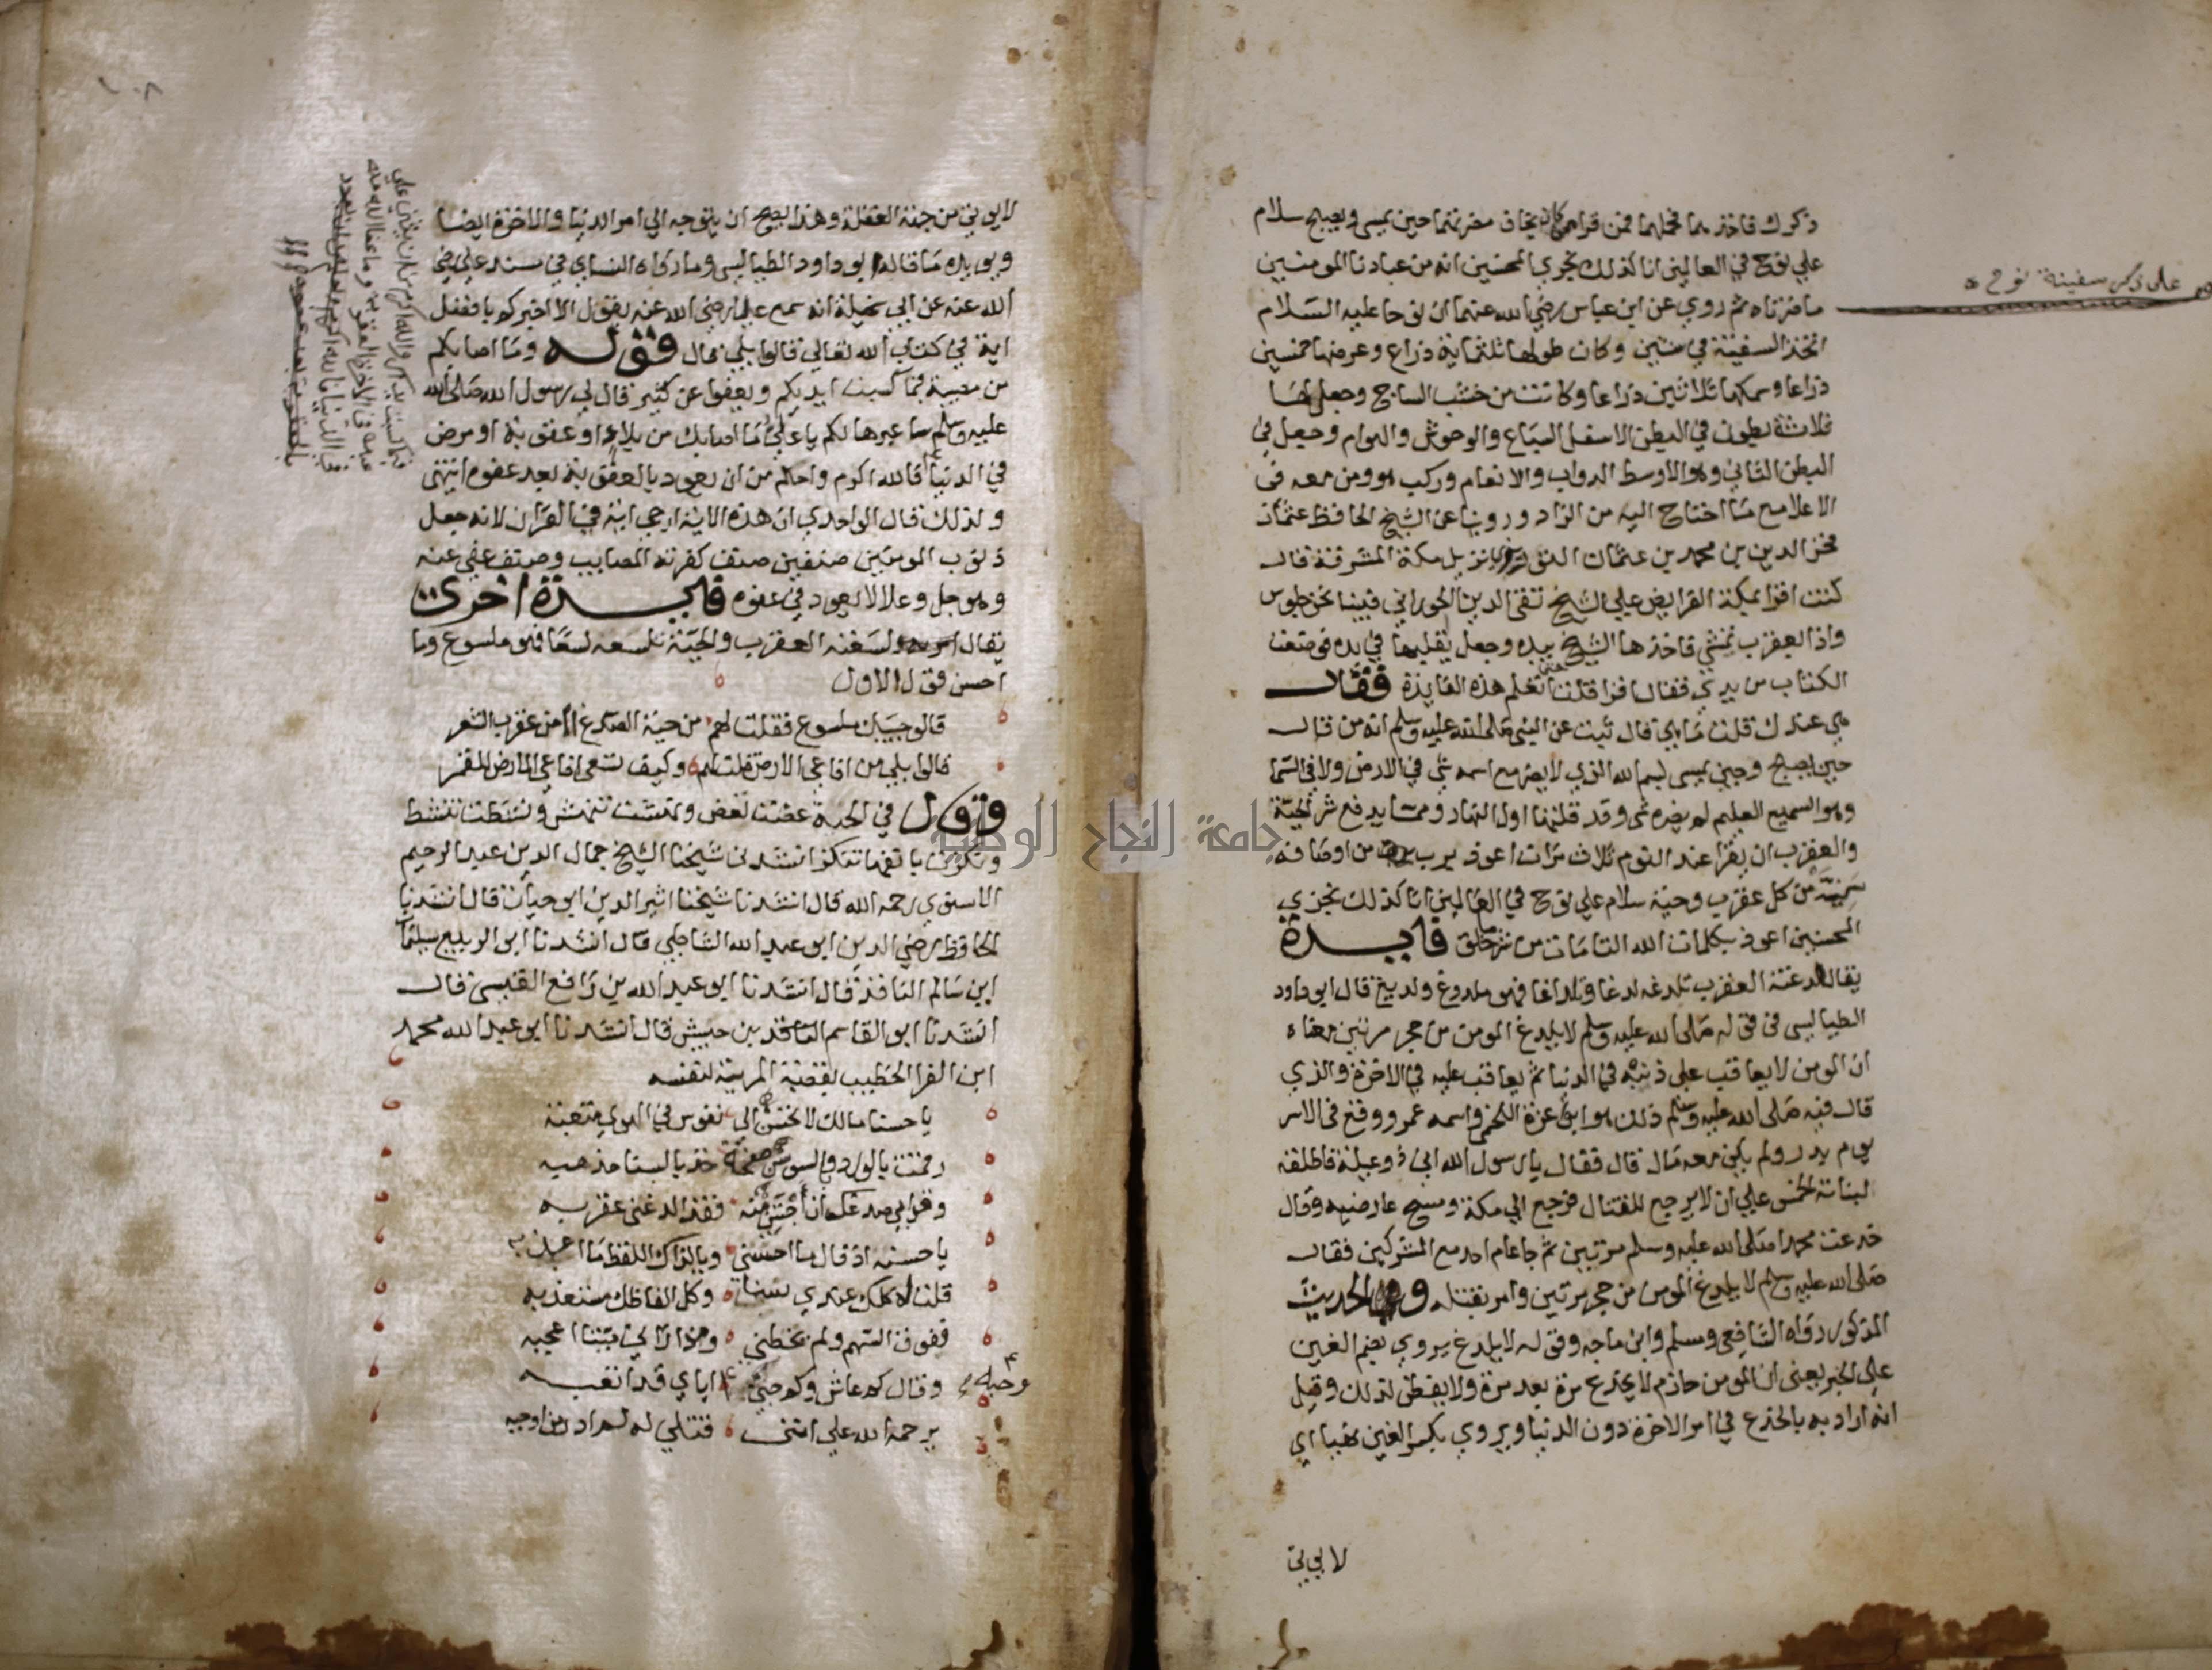 ذكرك فاخذ بهما فحملهما فمن قراهن كان يخاف مضرتهما حين يمسى ويصبح سلام
علي نوح في العالمين انا كذلك نجزي المحسنين انه من عبادنا المومنين
ما ضرتاه ثم روي عن ابن عباس رضي الله عنهما ان نوحا عليه السلام
اتخذ السفينة في سنتين وكان طولها ثلثماية ذراع وعرضها خمسين
ذراعا وسمكها ثلاثين ذراعا وكانت من خشب الساج وجعل لها
ثلاثة بطون في البطن الاسفل السباع والوحوش والهوام وجعل في
البطن الثاني وهو الاوسط الدواب والانعام وركب هو ومن معه في
الاعلا مع ما احتاج اليه من الزاد وروينا عن الشيخ الحافظ عثمان
فخر الدين بن محمد بن عثمان التوزري نزيل مكة المشرفة قال
كنت اقرا بمكة الفرايض علي الشيخ تقي الدين الحوراني فبينا نحن جلوس
واذا العقرب تمشي فاخذها الشيخ بيده وجعل يقلبها في يده فوضعت
الكتاب من يدي فقال اقرا قلت حتى اتعلم هذه الفايدة فقال
هي عندك قلت ما هي قال ثبت عن النبي صلى الله عليه وسلم انه من قال
حين يصبح وحين يمسى بسم الله الذي لا يضر مع اسمه شي في الارض ولا في السما
وهو السميع العليم لم يضره شى وقد قلتها اول النهار ومما يدفع شر الحية
والعقرب ان يقرا عند النوم ثلاث مرات اعوذ برب اوصافه
سمية من كل عقرب وحية سلام علي نوح في العالمين انا كذلك نجزي
المحسنين اعوذ بكلمات الله التامات من شر ما خلق فايدة
يقال لدغته العقرب تلدغه لدغا وتلداغا فهو ملدوغ ولديغ قال ابو داود
الطيالسى في قوله صلى الله عليه وسلم لا يلدغ المومن من جحر مرتين معناه
ان المومن لا يعاقب على ذنبه في الدنيا ثم يعاقب عليه في الاخرة والذي
قال فيه صلى الله عليه وسلم ذلك هو ابو عزة الجمحي واسمه عمرو وقع في الاسر
يوم بدر ولم يكن معه مال قال فقال يا رسول الله اني ذو عيلة فاطلقه
لبناته الخمس علي ان لا يرجع للقتال فرجع الي مكة ومسح عارضيه وقال
خدعت محمدا صلى الله عليه وسلم مرتين ثم جا عام احد مع المشركين فقال
صلى الله عليه وسلم لا يلدغ المومن من جحر مرتين وامر بقتله وهذا الحديث
المذكور رواه الشافعي ومسلم وابن ماجه وقوله لا يلدغ يروي بضم الغين
على الخبر يعنى ان المومن حازم لا يخدع مرة بعد مرة ولا يفطن لذلك وقيل
انه اراد به بالخدع في امر الاخرة دون الدنيا ويروي بكسر الغين نهيا اي
لا يوتي
على ذكر سفينة نوح
١٠٨
لا يوتي من جهة الغفلة وهذا يصح ان يتوجه الي امر الدنيا والاخرة ايضا
ويويده ما قاله ابو داود الطيالسى وما رواه النساي في مسند علي رضي
الله عنه عن ابي سخيلة انه سمع عليا رضي الله عنه يقول الا اخبركم بافضل
اية في كتاب الله تعالي قالوا بلي قال قوله وما اصابكم
من مصيبة فبما كسبت ايديكم ويعفوا عن كثير قال لي رسول الله صلى الله
عليه وسلم سا عبرها لكم يا علي ما اصابك من بلاء او عقوبة او مرض
في الدنيا فالله اكرم واحلم من ان يعود بالعقوبة بعد عفوه انتهى
ولذلك قال الواحدي ان هذه الاية ارجي اية في القران لانه جعل
ذنوب المومنين صنفين صنف كفرته المصايب وصنف عفي عنه
وهو جل وعلا لا يعود في عفوه فايدة اخرى
يقال لسعته العقرب والحية تلسعه لسعا فهو ملسوع وما
احسن قول الاول
قالوا حبيبك ملسوع فقلت لهم من حية الصدغ ام من عقرب الشعر
قالوا بلي من افاعي الارض قلت لهم وكيف تسعى افاعي الارض للقمر
وتقول في الحية عضت تعض ونهشت تنهش ونشطت تنشط
ونكزت بانفها تنكز انشدنى شيخنا الشيخ جمال الدين عبد الرحيم
الاسنوي رحمه الله قال انشدنا شيخنا اثير الدين ابو حيان قال انشدنا
الحافظ رضي الدين ابو عبد الله الشاطبي قال انشدنا ابو الربيع سليمان
ابن سالم الناقد قال انشدنا ابو عبد الله بن رافع القيسى قال
انشدنا ابو القاسم الناقد بن حبيش قال انشدنا ابو عبد الله محمد
ابن الفرا الخطيب بقصبة المرية لنفسه
يا حسنا مالك لا تحسن الى نفوس في الهوي متعبة
رقمت بالورد وبالسوسن صفحة خد بالسنا مذهبه
وقد ابي صدغك ان اجتني منه فقد الدغني عقربه
يا حسنه اذ قال ما احسني ويا لذاك اللفظ ما اعذبه
قلت له كلك عندي سنا وكل الفاظك مستعذبه
ففوق السهم ولم يخطني ومذ راني ميتا اعجبه
وقال كم عاش وكم حبني وحبه اياي قد اتعبه
يرحمه الله علي انني قتلي له لم ادر من اوجبه
جامعة النجاح الوطنية